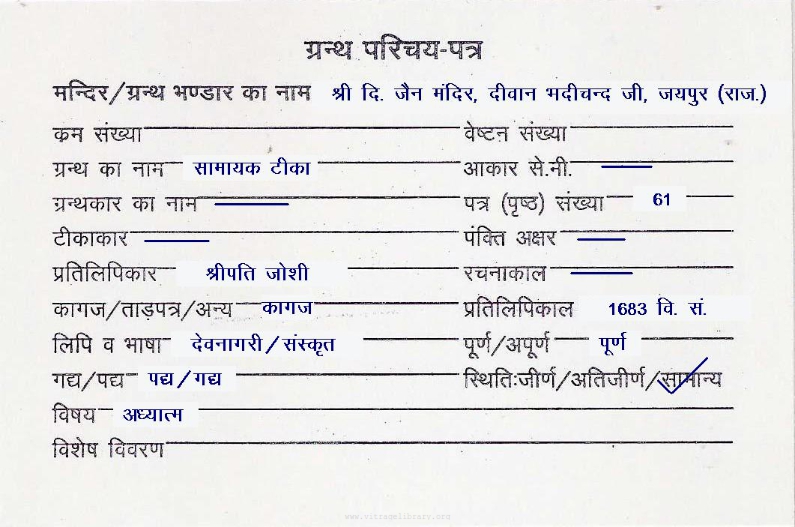 ग्रन्थ परिचय-पत्र
मन्दिर/ग्रन्थ भण्डार का नाम श्री दि. जैन मंदिर, दीवान भदीचन्द जी, जयपुर (राज.)
कम संख्या वेष्टन संख्या
ग्रन्थ का नाम सामायक टीका आकार से.नी.
ग्रन्थकार का नाम पत्र (पृष्ठ) संख्या 61
टीकाकार पंक्ति अक्षर
प्रतिलिपिकार श्रीपति जोशी रचनाकाल
कागज/ताड़पत्र/अन्य कागज प्रतिलिपिकाल 1683 वि. सं.
लिपि व भाषा देवनागरी/संस्कृत पूर्ण/अपूर्ण पूर्ण
गद्य/पद्य पद्य/गद्य स्थितिःजीर्ण/अतिजीर्ण/सामान्य
विषय अध्यात्म
विशेष विवरण
www.vitragelibrary.com